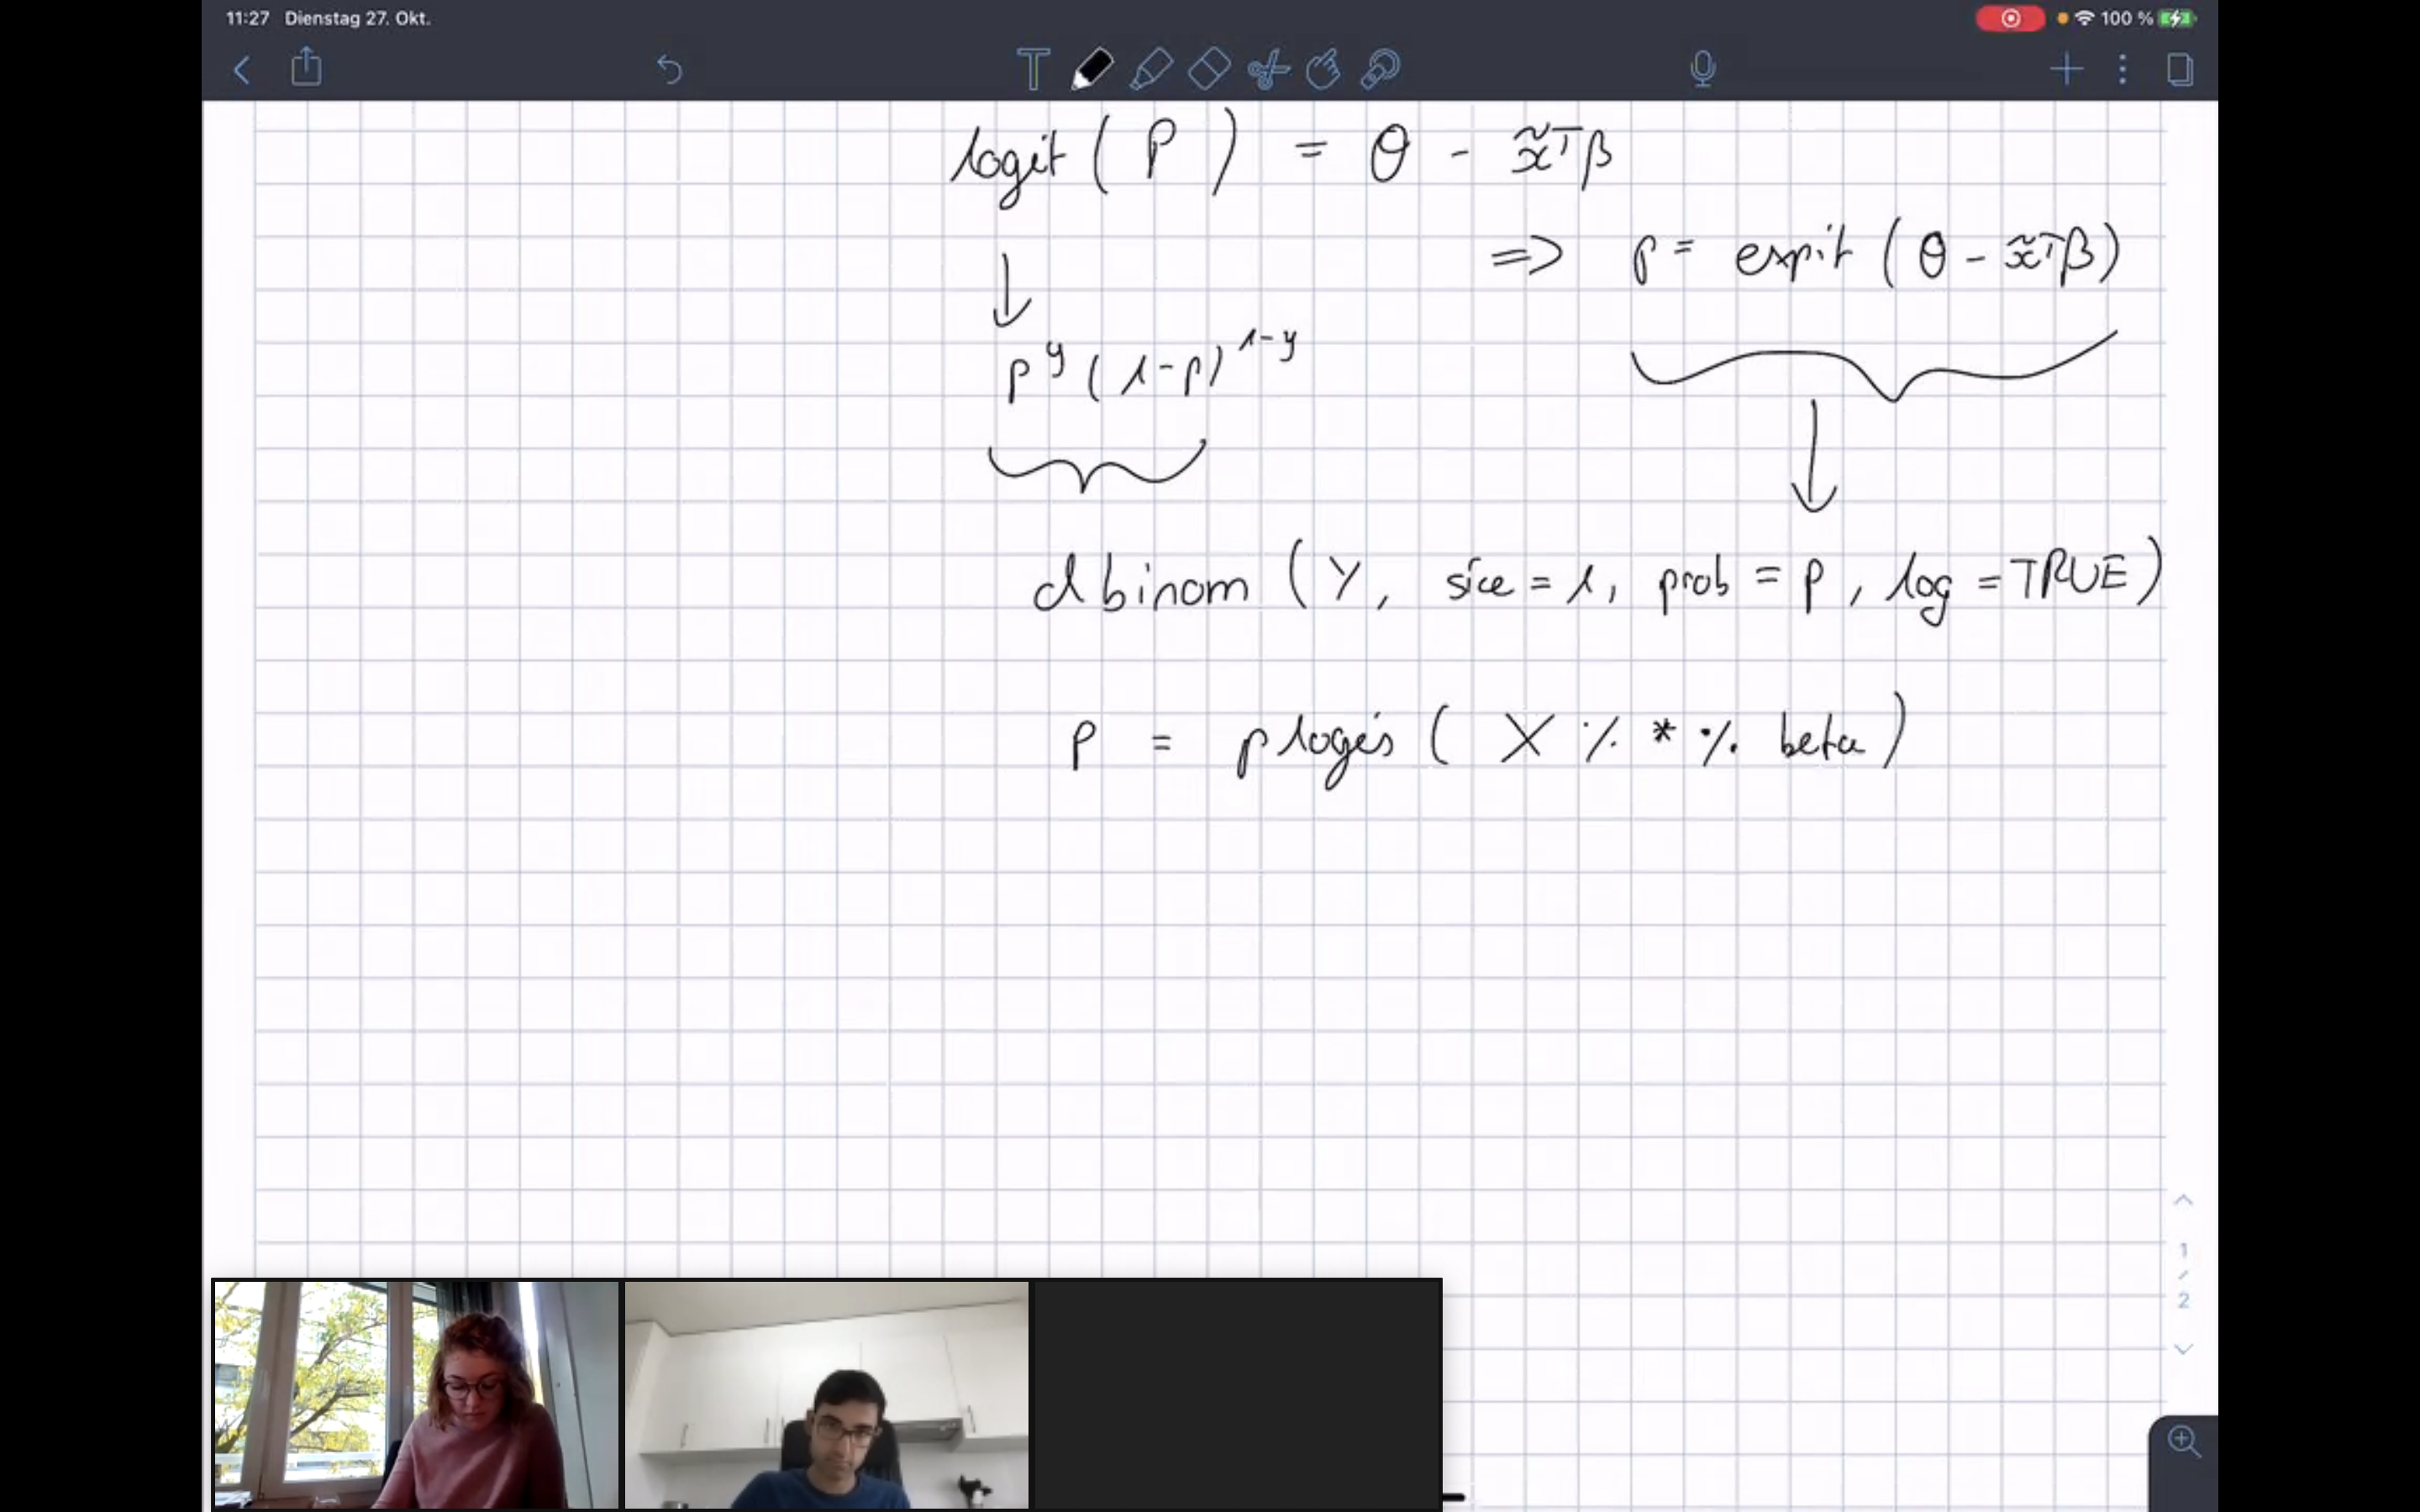 11:27 Dienstag 27. Okt. 100 %
T
logit ( P ) = θ - x̃ᵀβ
=> p = expit ( θ - x̃ᵀβ )
↓
p^y ( 1-p )^1-y
↓
dbinom ( Y, size = 1, prob = p, log = TRUE )
p = plogis ( X % * % beta )
1
/
2